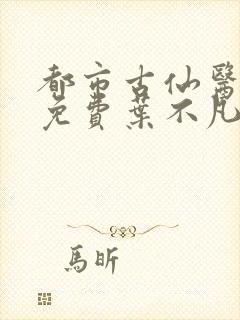 都市古仙醫
免費葉不凡
馬昕